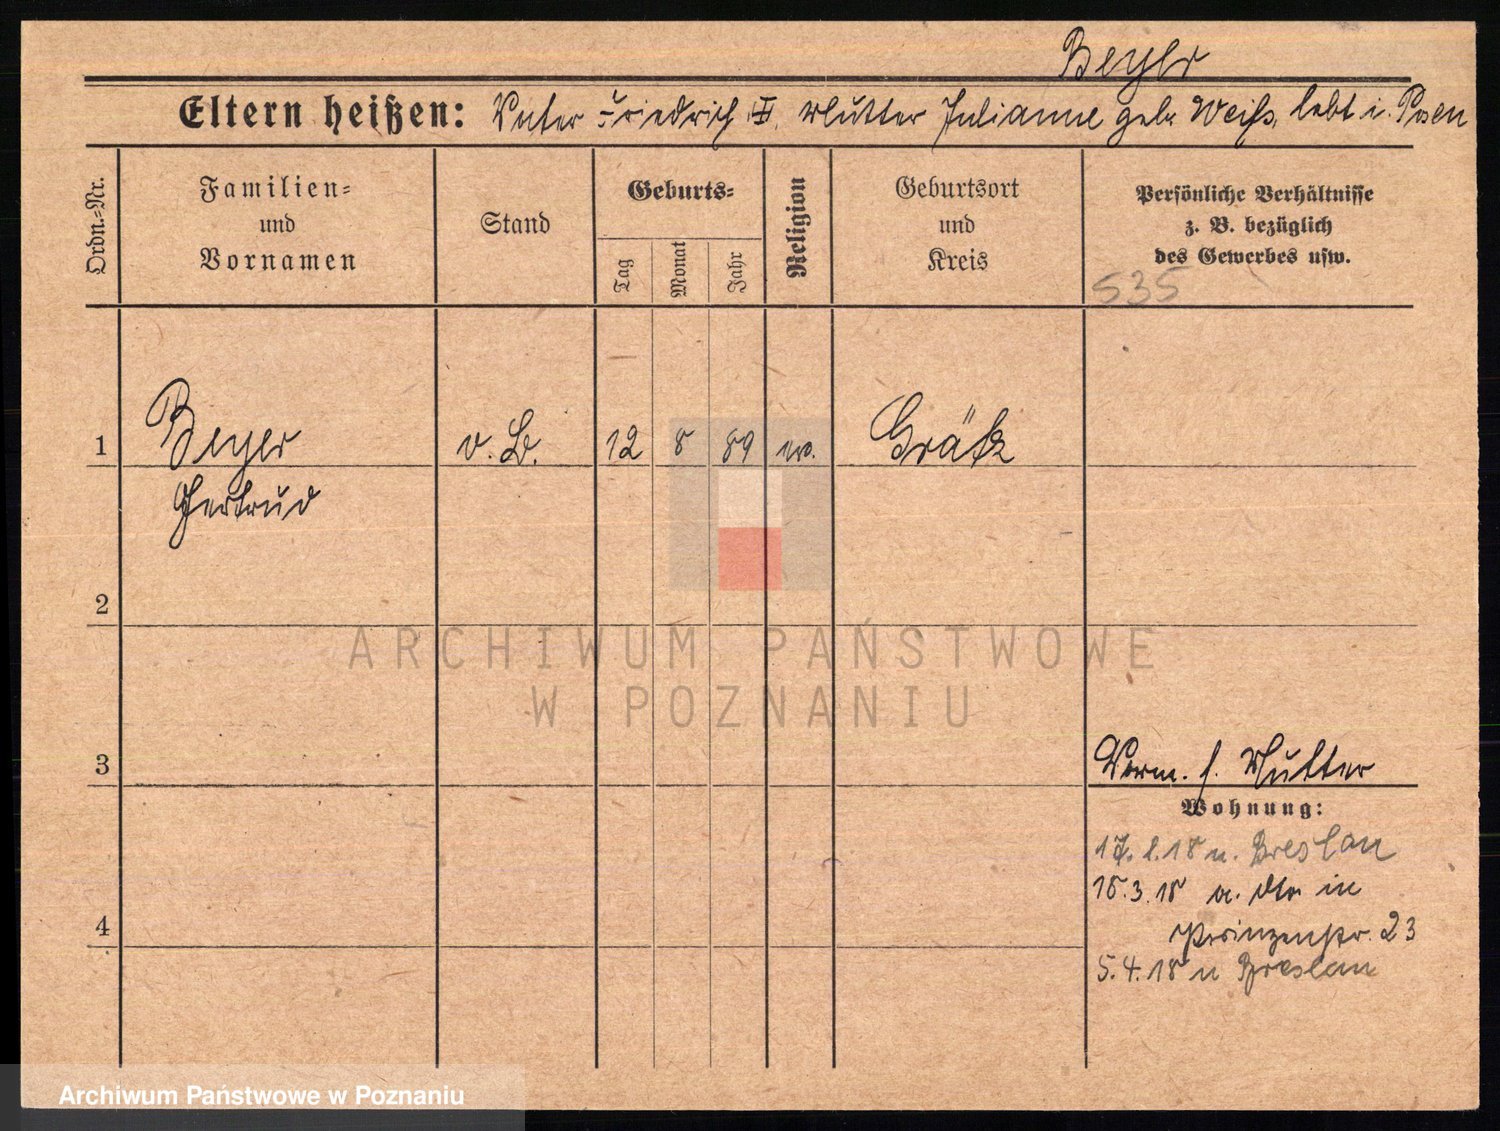 Beyer
Eltern heißen: Vater Friedrich II. Mutter Julianne geb. Weiß, lebt i. Posen
Ordn.=Nr.
Familien=
und
Vornamen
Stand
Geburts=
Tag
Monat
Jahr
Religion
Geburtsort
und
Kreis
Persönliche Verhältnisse
z. B. bezüglich
des Gewerbes usw.
535
1 Beyer o. B. 12 8 89 Grätz
Gertrud
2
3
Verm. s. Mutter
Wohnung:
17. 1. 18 n. Breslau
18. 3. 18 a. dto in
Prinzenstr. 23
4
5. 4. 18 n Breslau
ARCHIWUM PAŃSTWOWE
W POZNANIU
Archiwum Państwowe w Poznaniu